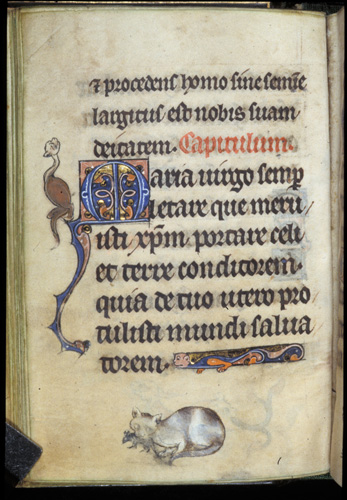 ⁊ procedens homo sine semīe
largitus est nobis suam
deitatem. Capitulum.
Maria uirgo semp
letare que meru
isti xp̄m portare celi
et terre conditorem.
quia de tuo utero pro
tulisti mundi salua
torem.